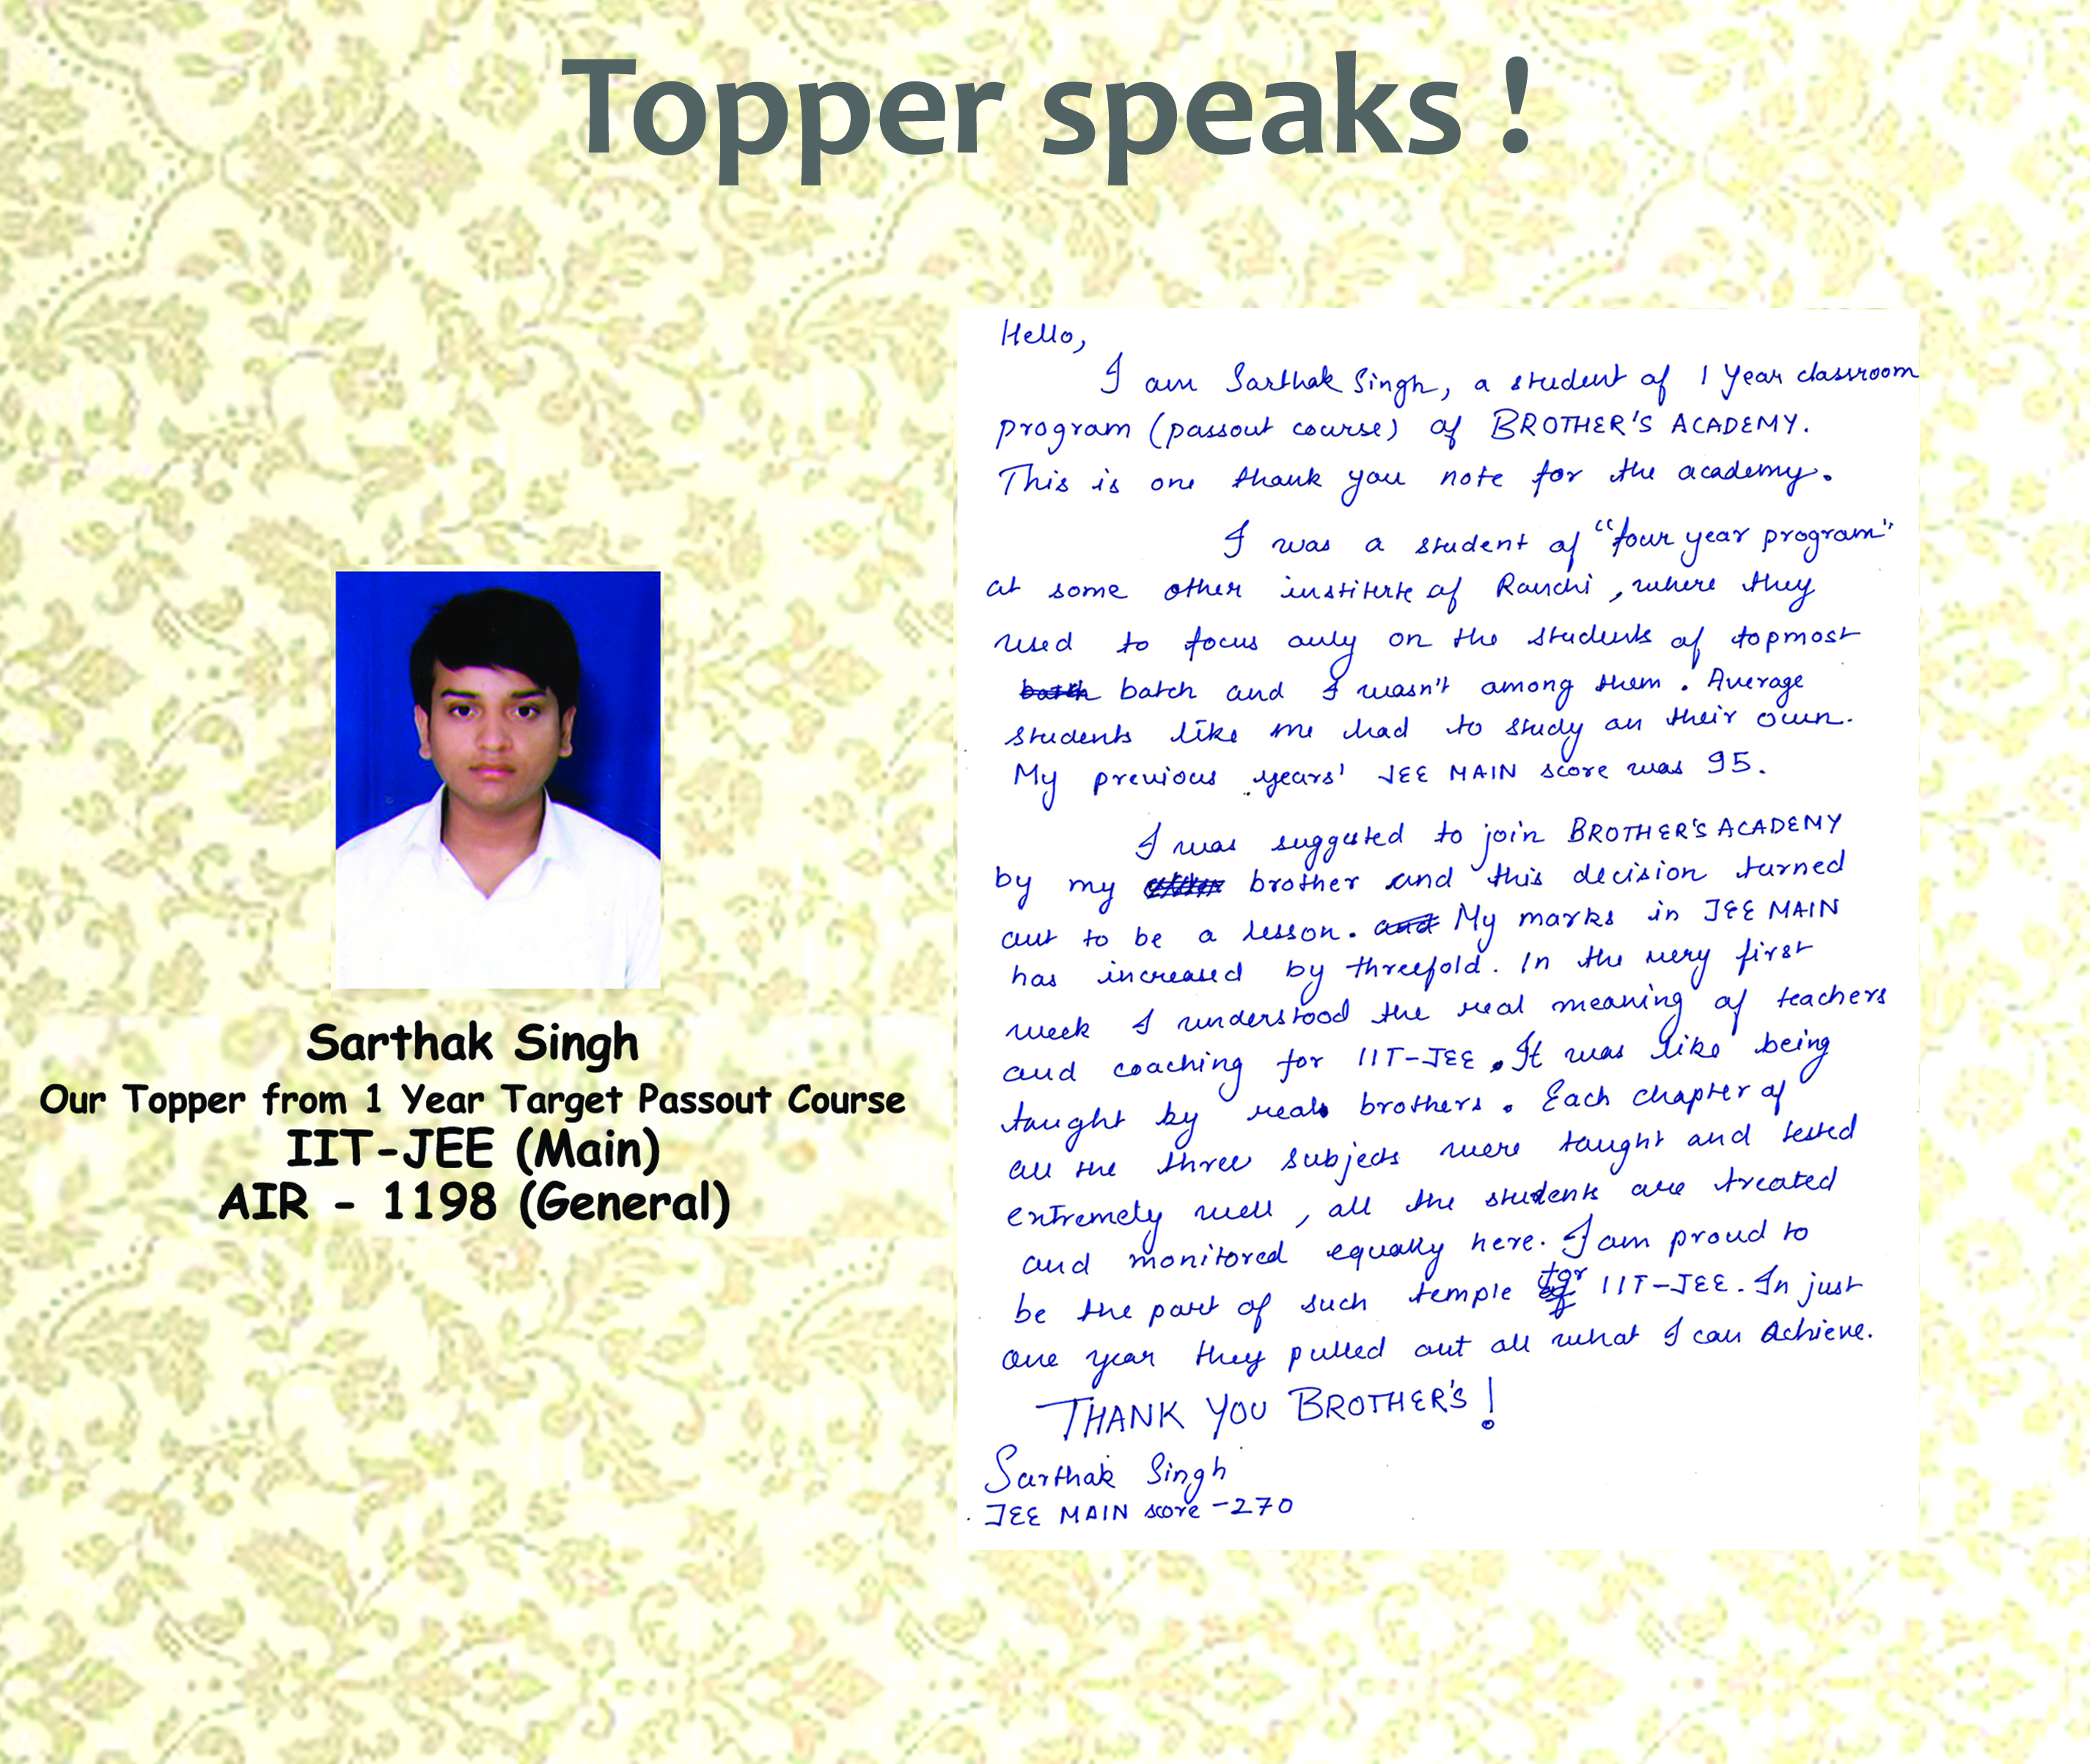 Topper speaks !
Sarthak Singh
Our Topper from 1 Year Target Passout Course
IIT-JEE (Main)
AIR - 1198 (General)
Hello,
I am Sarthak Singh, a student of 1 Year classroom
program (passout course) of BROTHER'S ACADEMY.
This is one thank you note for the academy.
I was a student of "four year program"
at some other institute of Ranchi, where they
used to focus only on the students of topmost
batch batch and I wasn't among them. Average
students like me had to study on their own.
My previous years' JEE MAIN score was 95.
I was suggested to join BROTHER'S ACADEMY
by my brother and this decision turned
out to be a lesson. and My marks in JEE MAIN
has increased by threefold. In the very first
week I understood the real meaning of teachers
and coaching for IIT-JEE. It was like being
taught by real brothers. Each chapter of
all the three subjects were taught and tested
extremely well, all the students are treated
and monitored equally here. I am proud to
be the part of such temple for IIT-JEE. In just
one year they pulled out all what I can Achieve.
THANK YOU BROTHER'S!
Sarthak Singh
JEE MAIN score - 270